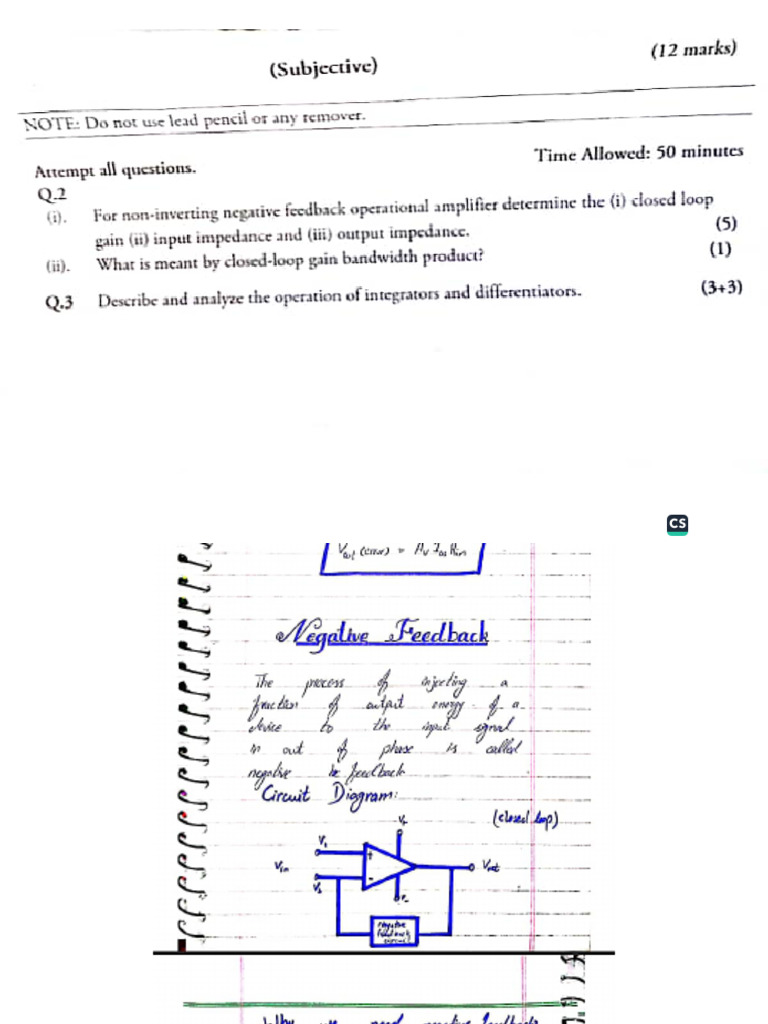 (12 marks)
(Subjective)
NOTE: Do not use lead pencil or any remover.
Time Allowed: 50 minutes
Attempt all questions.
Q.2
(i). For non-inverting negative feedback operational amplifier determine the (i) closed loop
gain (ii) input impedance and (iii) output impedance. (5)
(ii). What is meant by closed-loop gain bandwidth product? (1)
Q.3 Describe and analyze the operation of integrators and differentiators. (3+3)
CS
Vout (error) = Av Ios Rin
Negative Feedback
The process of injecting a
fraction of output energy of a
device to the input signal
in out of phase is called
negative feedback
Circuit Diagram:
(closed loop)
V+
V1
+
Vin
Vout
V2
-
V-
negative
feedback
circuit
Why we need negative feedback